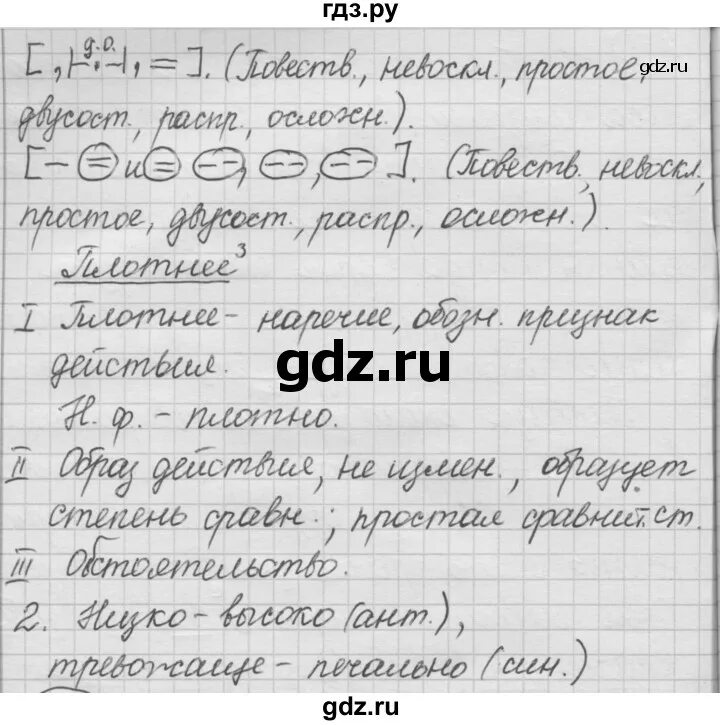 гдз.ру
[ , |-д.о.-|, = ]. (Повеств., невоскл., простое,
gdz.ru
двусост., распр., осложн.).
[ – = и = – –, – –, – – ]. (Повеств., невоскл.,
простое, двусост., распр., осложн.).
Плотнее³
I Плотнее – наречие, обозн. признак
действия.
gdz.ru
Н. ф. – плотно.
II Образ действия, не измен., образует
степень сравн.; простая сравнит. ст.
III Обстоятельство.
2. Низко – высоко (ант.),
тревожаще – печально (син.)
gdz.ru